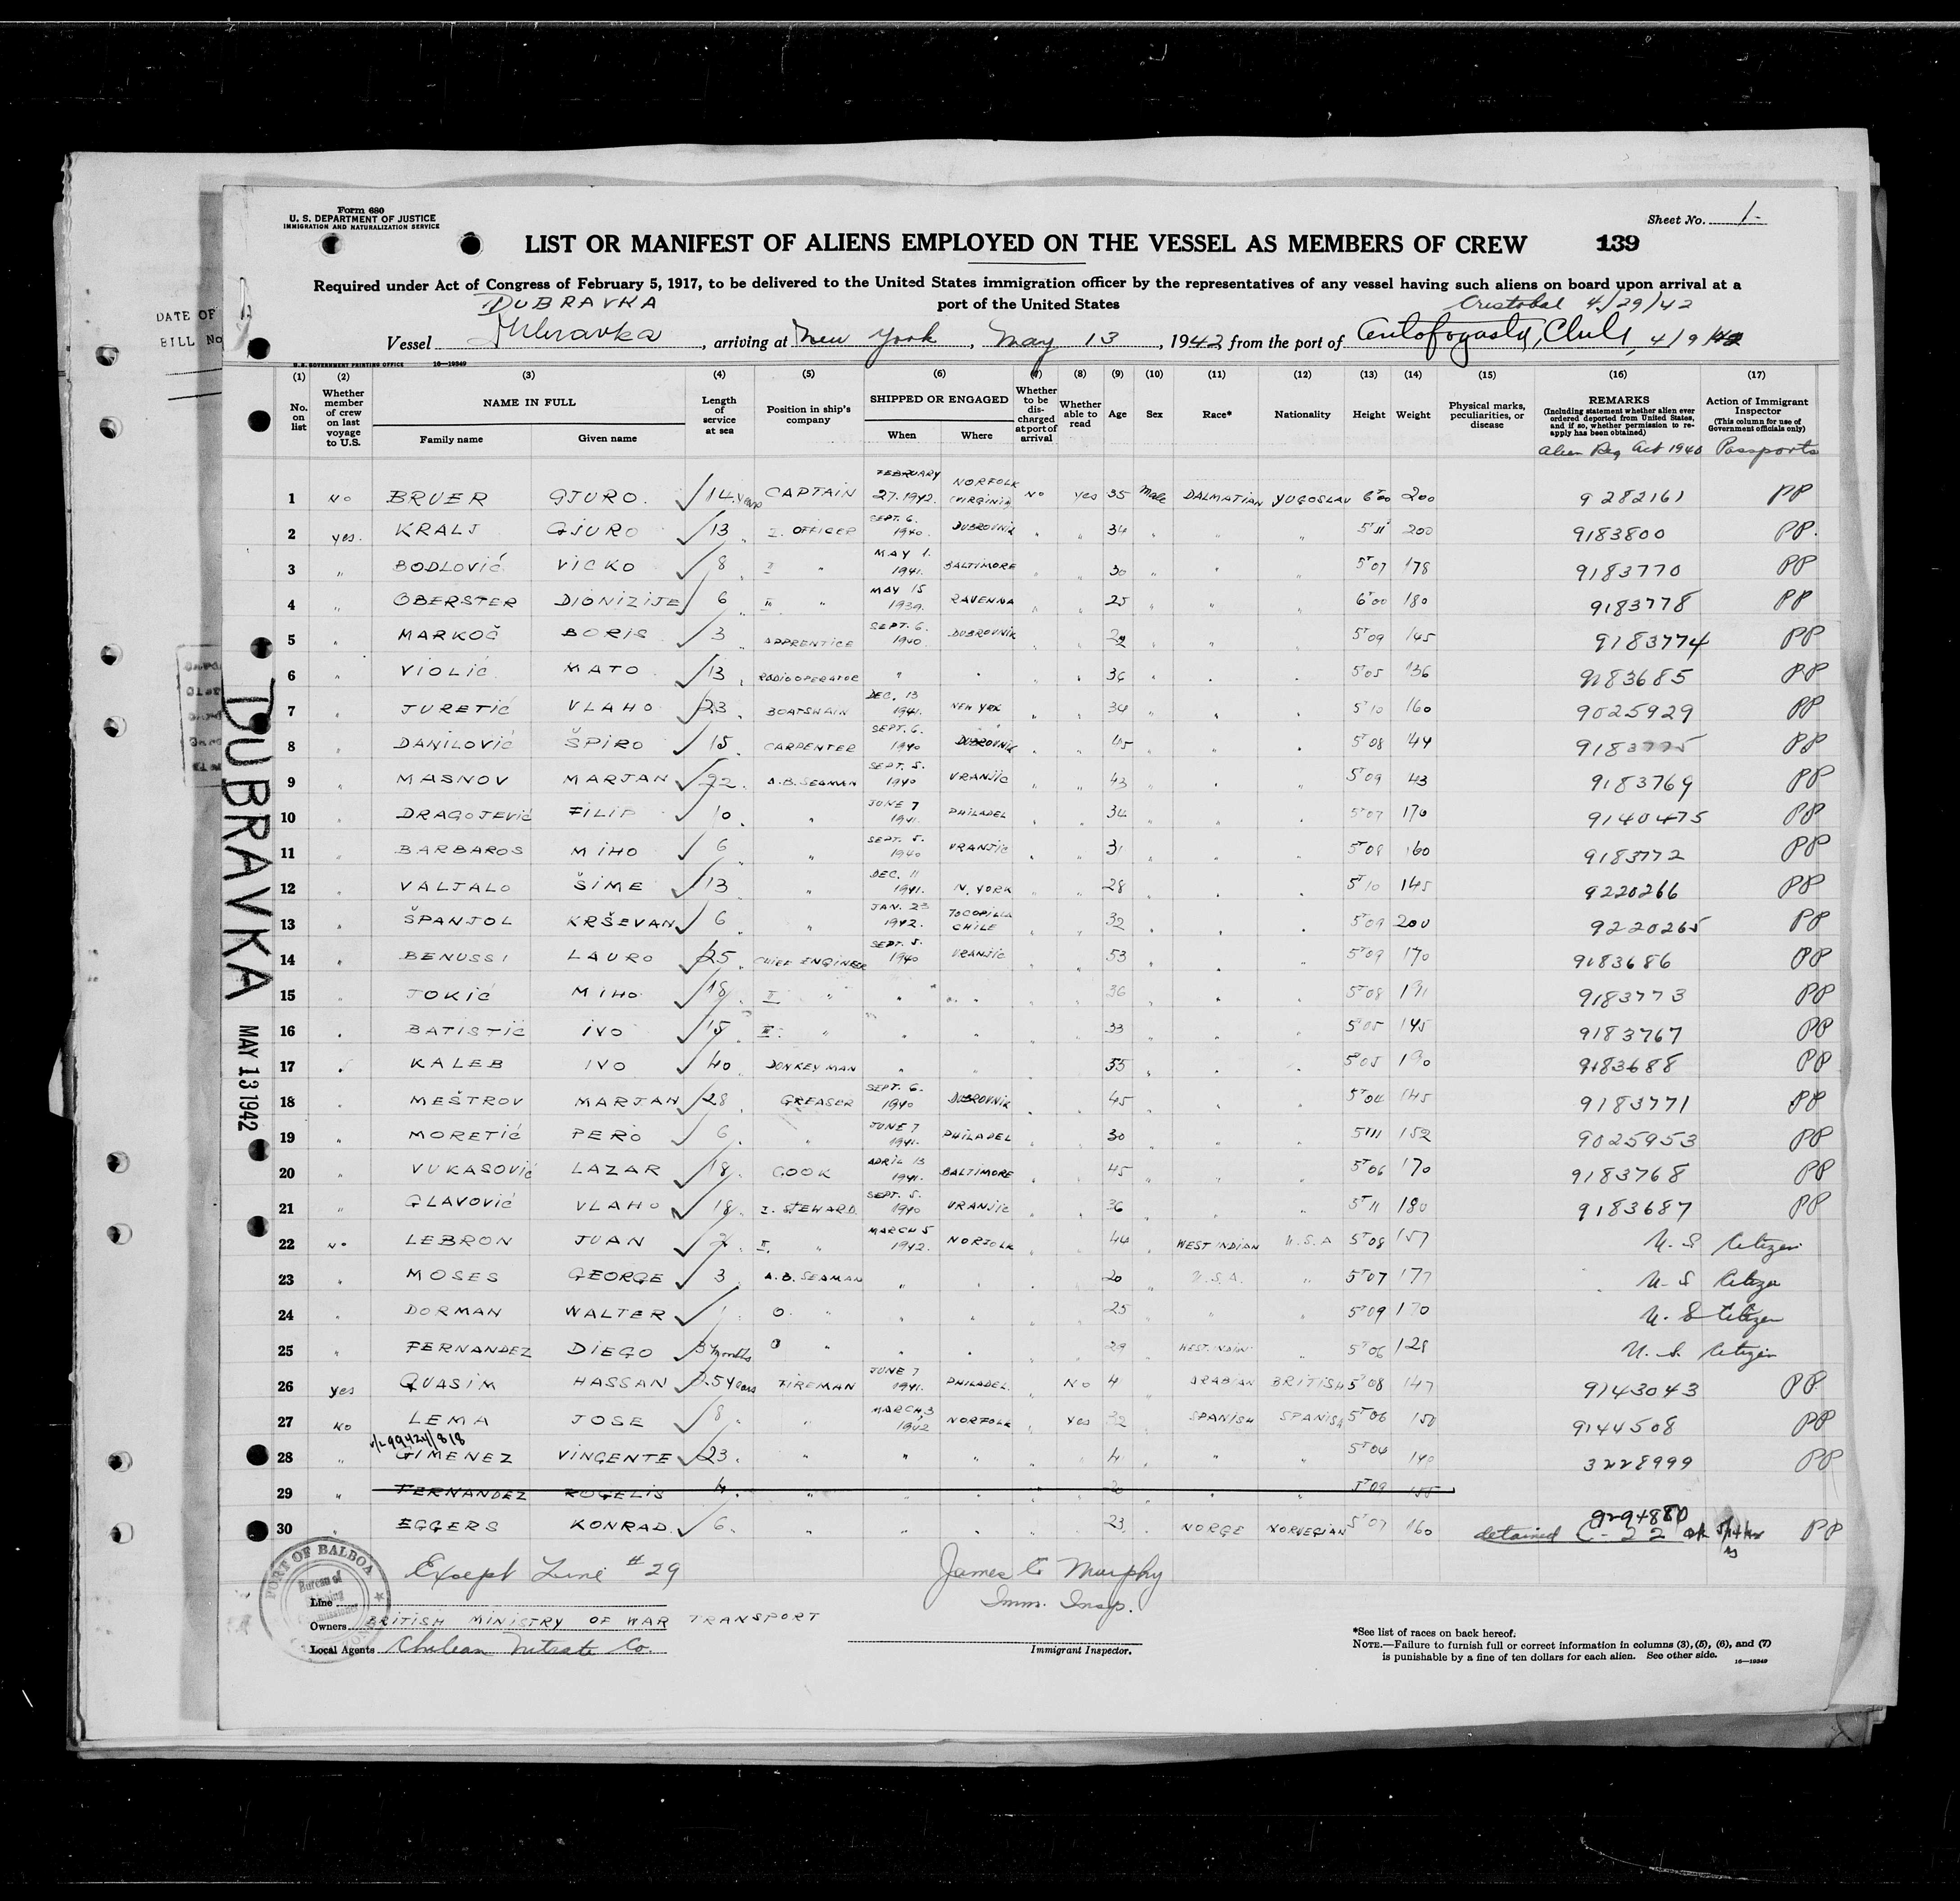 Form 680
U. S. DEPARTMENT OF JUSTICE
IMMIGRATION AND NATURALIZATION SERVICE
Sheet No. 1.
LIST OR MANIFEST OF ALIENS EMPLOYED ON THE VESSEL AS MEMBERS OF CREW 139
Required under Act of Congress of February 5, 1917, to be delivered to the United States immigration officer by the representatives of any vessel having such aliens on board upon arrival at a
port of the United States
DUBRAVKA Cristobal 4/29/42
Vessel Dubravka, arriving at New York, May 13, 1942 from the port of Antofogasta, Chile, 4/9/42
DATE OF
BILL No
U.S. GOVERNMENT PRINTING OFFICE 16—19349
(1) (2) (3) (4) (5) (6) (7) (8) (9) (10) (11) (12) (13) (14) (15) (16) (17)
No. on list Whether member of crew on last voyage to U.S. NAME IN FULL Family name Given name Length of service at sea Position in ship's company SHIPPED OR ENGAGED When Where Whether to be discharged at port of arrival Whether able to read Age Sex Race* Nationality Height Weight Physical marks, peculiarities, or disease REMARKS (Including statement whether alien ever ordered deported from United States, and if so, whether permission to reapply has been obtained) Action of Immigrant Inspector (This column for use of Government officials only)
Alien Reg Act 1940 Passports
1 No BRUER GJURO. 14 years CAPTAIN FEBRUARY 27. 1942. NORFOLK (VIRGINIA) No yes 35 Male DALMATIAN YUGOSLAV 6'00 200 9282161 PP
2 yes. KRALJ GJURO 13 " I. OFFICER SEPT. 6. 1940. DUBROVNIK " " 34 " " " 5'11 200 9183800 PP.
3 " BODLOVIĆ VICKO 8 " II " MAY 1. 1941. BALTIMORE " " 30 " " " 5'07 178 9183770 PP
4 " OBERSTER DIONIZIJE 6 " III " MAY 15 1939. RAVENNA " " 25 " " " 6'00 180 9183778 PP
5 " MARKOČ BORIS 3 " APPRENTICE SEPT. 6. 1940 DUBROVNIK " " " " " 5'09 145 9183774 PP
6 " VIOLIĆ MATO 13 " RADIOOPERATOR " " " " 36 " " " 5'05 136 9183685 PP
7 " JURETIĆ VLAHO 23 " BOATSWAIN DEC. 13 1941. NEW YRK " " 34 " " " 5'10 160 9025929 PP
8 " DANILOVIĆ ŠPIRO 15 " CARPENTER SEPT. 6. 1940 DUBROVNIK " " 45 " " " 5'08 144 9183775 PP
9 " MASNOV MARJAN 22 " A.B. SEAMAN SEPT. 5. 1940 VRANJIC " " 43 " " " 5'09 43 9183769 PP
10 " DRAGOJEVIĆ FILIP 10 " " JUNE 7 1941. PHILADEL " " 34 " " " 5'07 170 9140475 PP
11 " BARBAROS MIHO 6 " " SEPT. 5. 1940 VRANJIC " " 31 " " " 5'08 160 9183772 PP
12 " VALJALO ŠIME 13 " " DEC. 11 1941. N. YORK " " 28 " " " 5'10 145 9220266 PP
13 " ŠPANJOL KRŠEVAN 6 " " JAN. 23 1942. TOCOPILLA CHILE " " 32 " " " 5'09 200 9220265 PP
14 " BENUSSI LAURO 25 " CHIEF ENGINEER SEPT. 5. 1940 VRANJIC " " 53 " " " 5'09 170 9183686 PP
15 " JOKIĆ MIHO 18 " II " " " " " 36 " " " 5'08 9183773 PP
16 " BATISTIĆ IVO 15 " III. " " " " " 33 " " " 5'05 145 9183767 PP
17 " KALEB IVO 40 " DONKEY MAN " " " " 55 " " " 5'05 9183688 PP
18 " MEŠTROV MARJAN 28 " GREASER SEPT. 6. 1940 DUBROVNIK " " 45 " " " 5'04 145 9183771 PP
19 " MORETIĆ PERO 6 " " JUNE 7 1941. PHILADEL " " 30 " " " 5'11 152 9025953 PP
20 " VUKASOVIĆ LAZAR 18 " COOK APRIL 13 1941. BALTIMORE " " 45 " " " 5'06 170 9183768 PP
21 " GLAVOVIĆ VLAHO 18 " I. STEWARD. SEPT. 5. 1940 VRANJIC " " 36 " " " 5'11 180 9183687 PP
22 No LEBRON JUAN 2 " II. " MARCH 5 1942. NORFOLK " " 44 " WEST INDIAN U.S.A 5'08 157 U. S Citizen
23 " MOSES GEORGE 3 " A.B. SEAMAN " " " " 20 " U.S.A. " 5'07 177 U. S Citizen
24 " DORMAN WALTER 1 " O. " " " " " 25 " " " 5'09 170 U. S Citizen
25 " FERNANDEZ DIEGO 3 months O " " " " " 29 " WEST INDIAN " 5'06 128 U. S. Citizen
26 yes QUASIM HASSAN 25 years FIREMAN JUNE 7 1941. PHILADEL. " No " ARABIAN BRITISH 5'08 147 9143043 PP.
27 No LEMA JOSE 8 " " MARCH 3 1942 NORFOLK " yes 32 " SPANISH SPANISH 5'06 150 9144508 PP
v/c 99424/818
28 " GIMENEZ VINCENTE 23. " " " " " " " " 5'04 140 3228999 PP
29 " FERNANDEZ ROGELIS 4. " " " " " " " " 5'09 155
30 " EGGERS KONRAD. 6. " " " " " 23. " NORGE NORVEGIAN 5'07 160 9294880 detained C-22 PP
Except Line #29
James C Murphy
Imm. Insp.
PORT OF BALBOA
Line
Owners BRITISH MINISTRY OF WAR TRANSPORT
Local Agents Chilean Nitrate Co.
Immigrant Inspector.
*See list of races on back hereof.
NOTE.—Failure to furnish full or correct information in columns (3), (5), (6), and (7)
is punishable by a fine of ten dollars for each alien. See other side. 16—19349
DUBRAVKA
MAY 13 1942